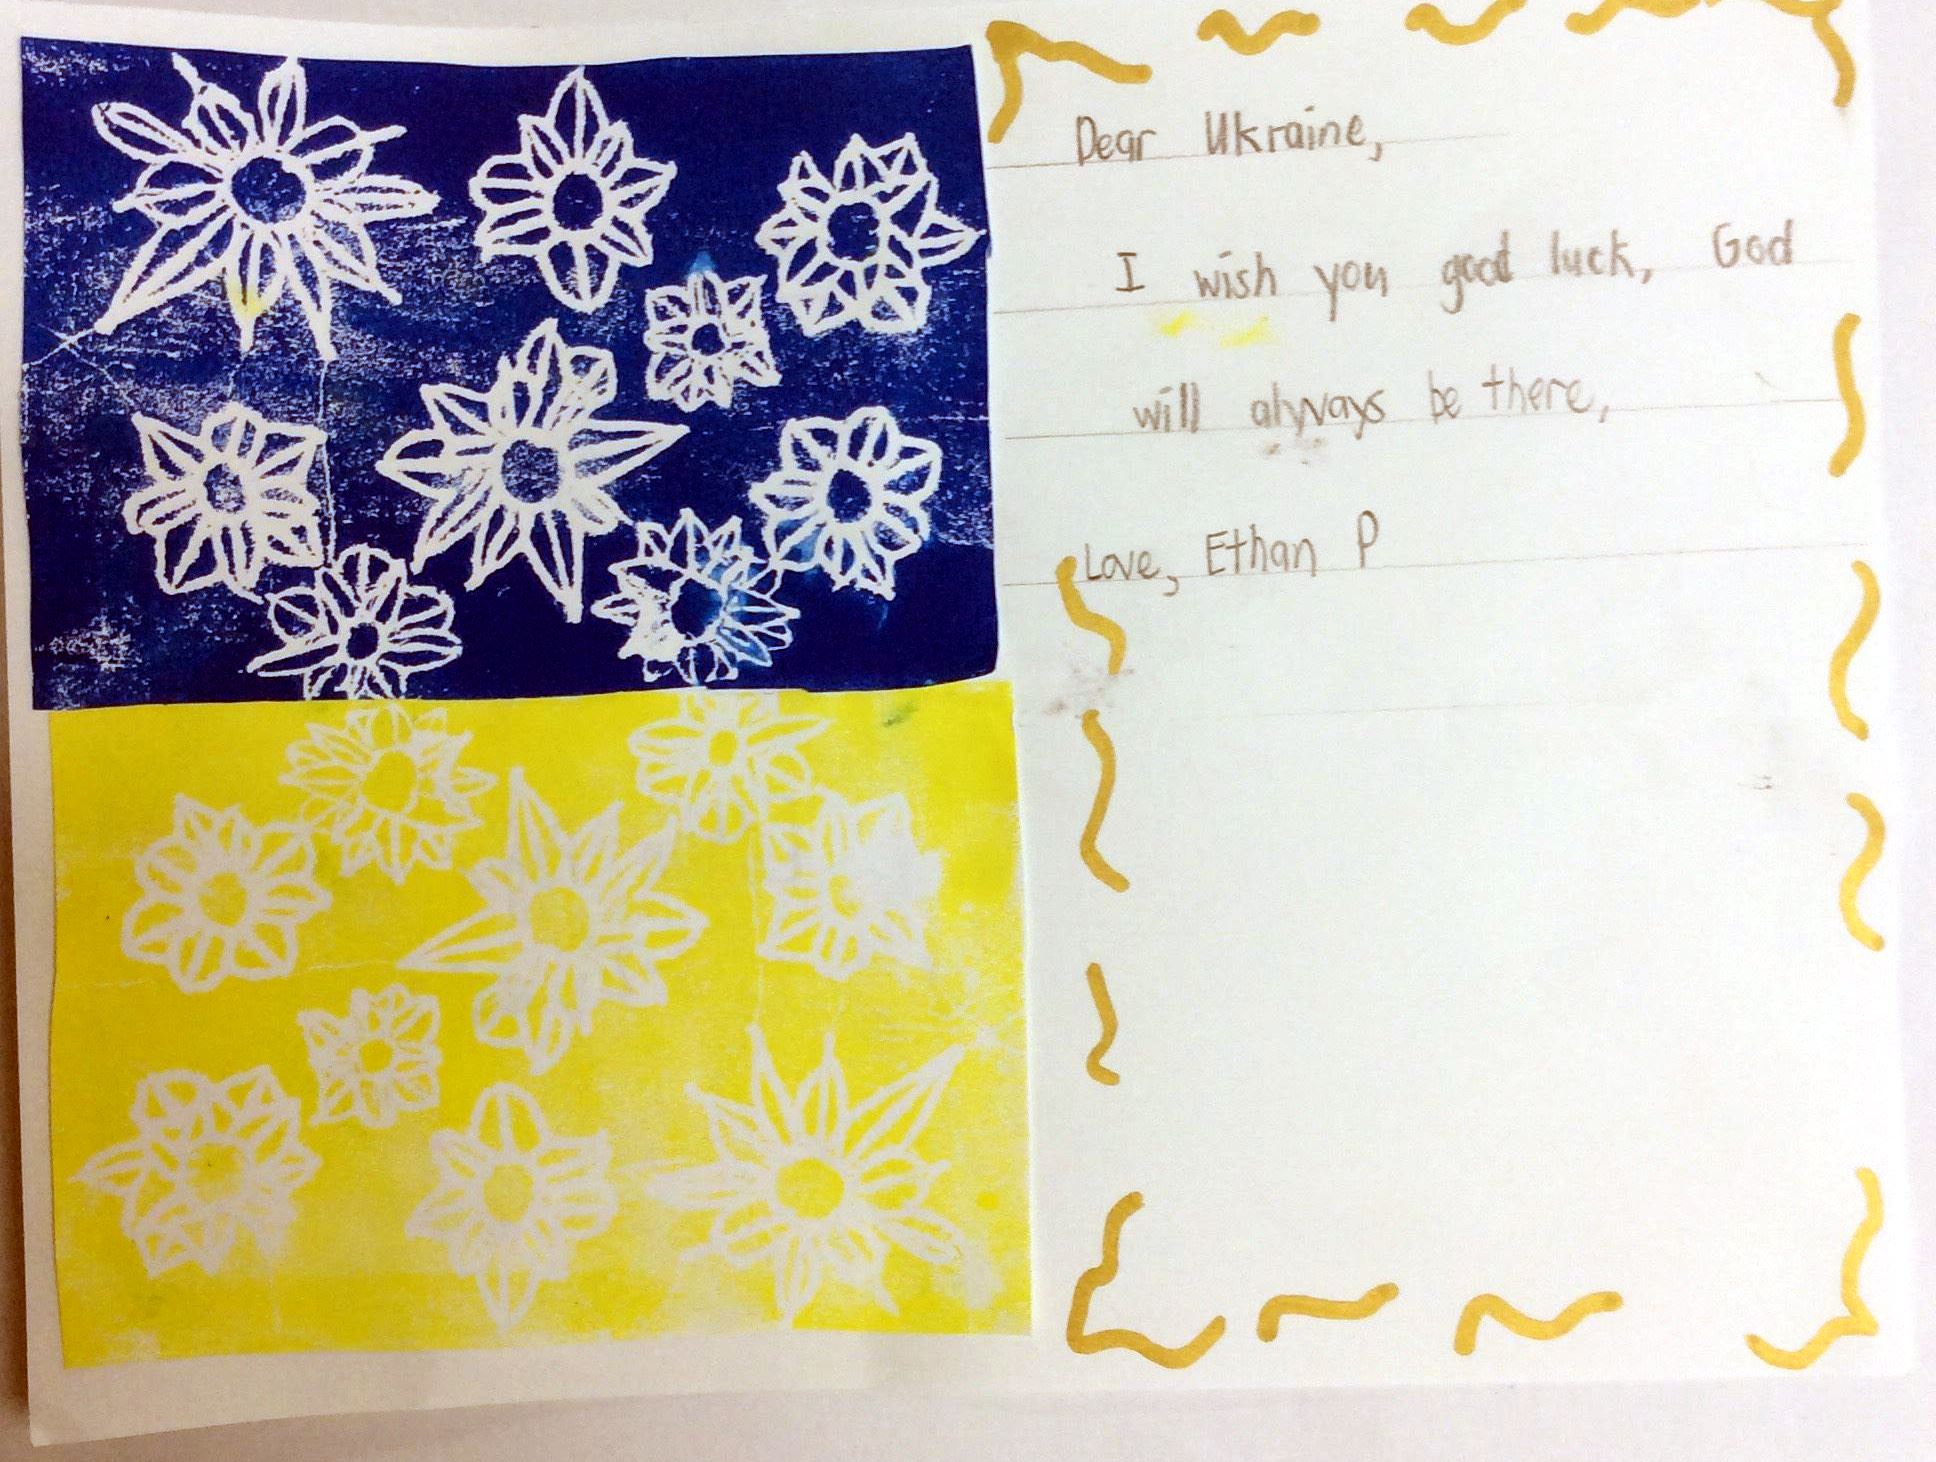 Dear Ukraine,
I wish you good luck, God
will always be there,
Love, Ethan P